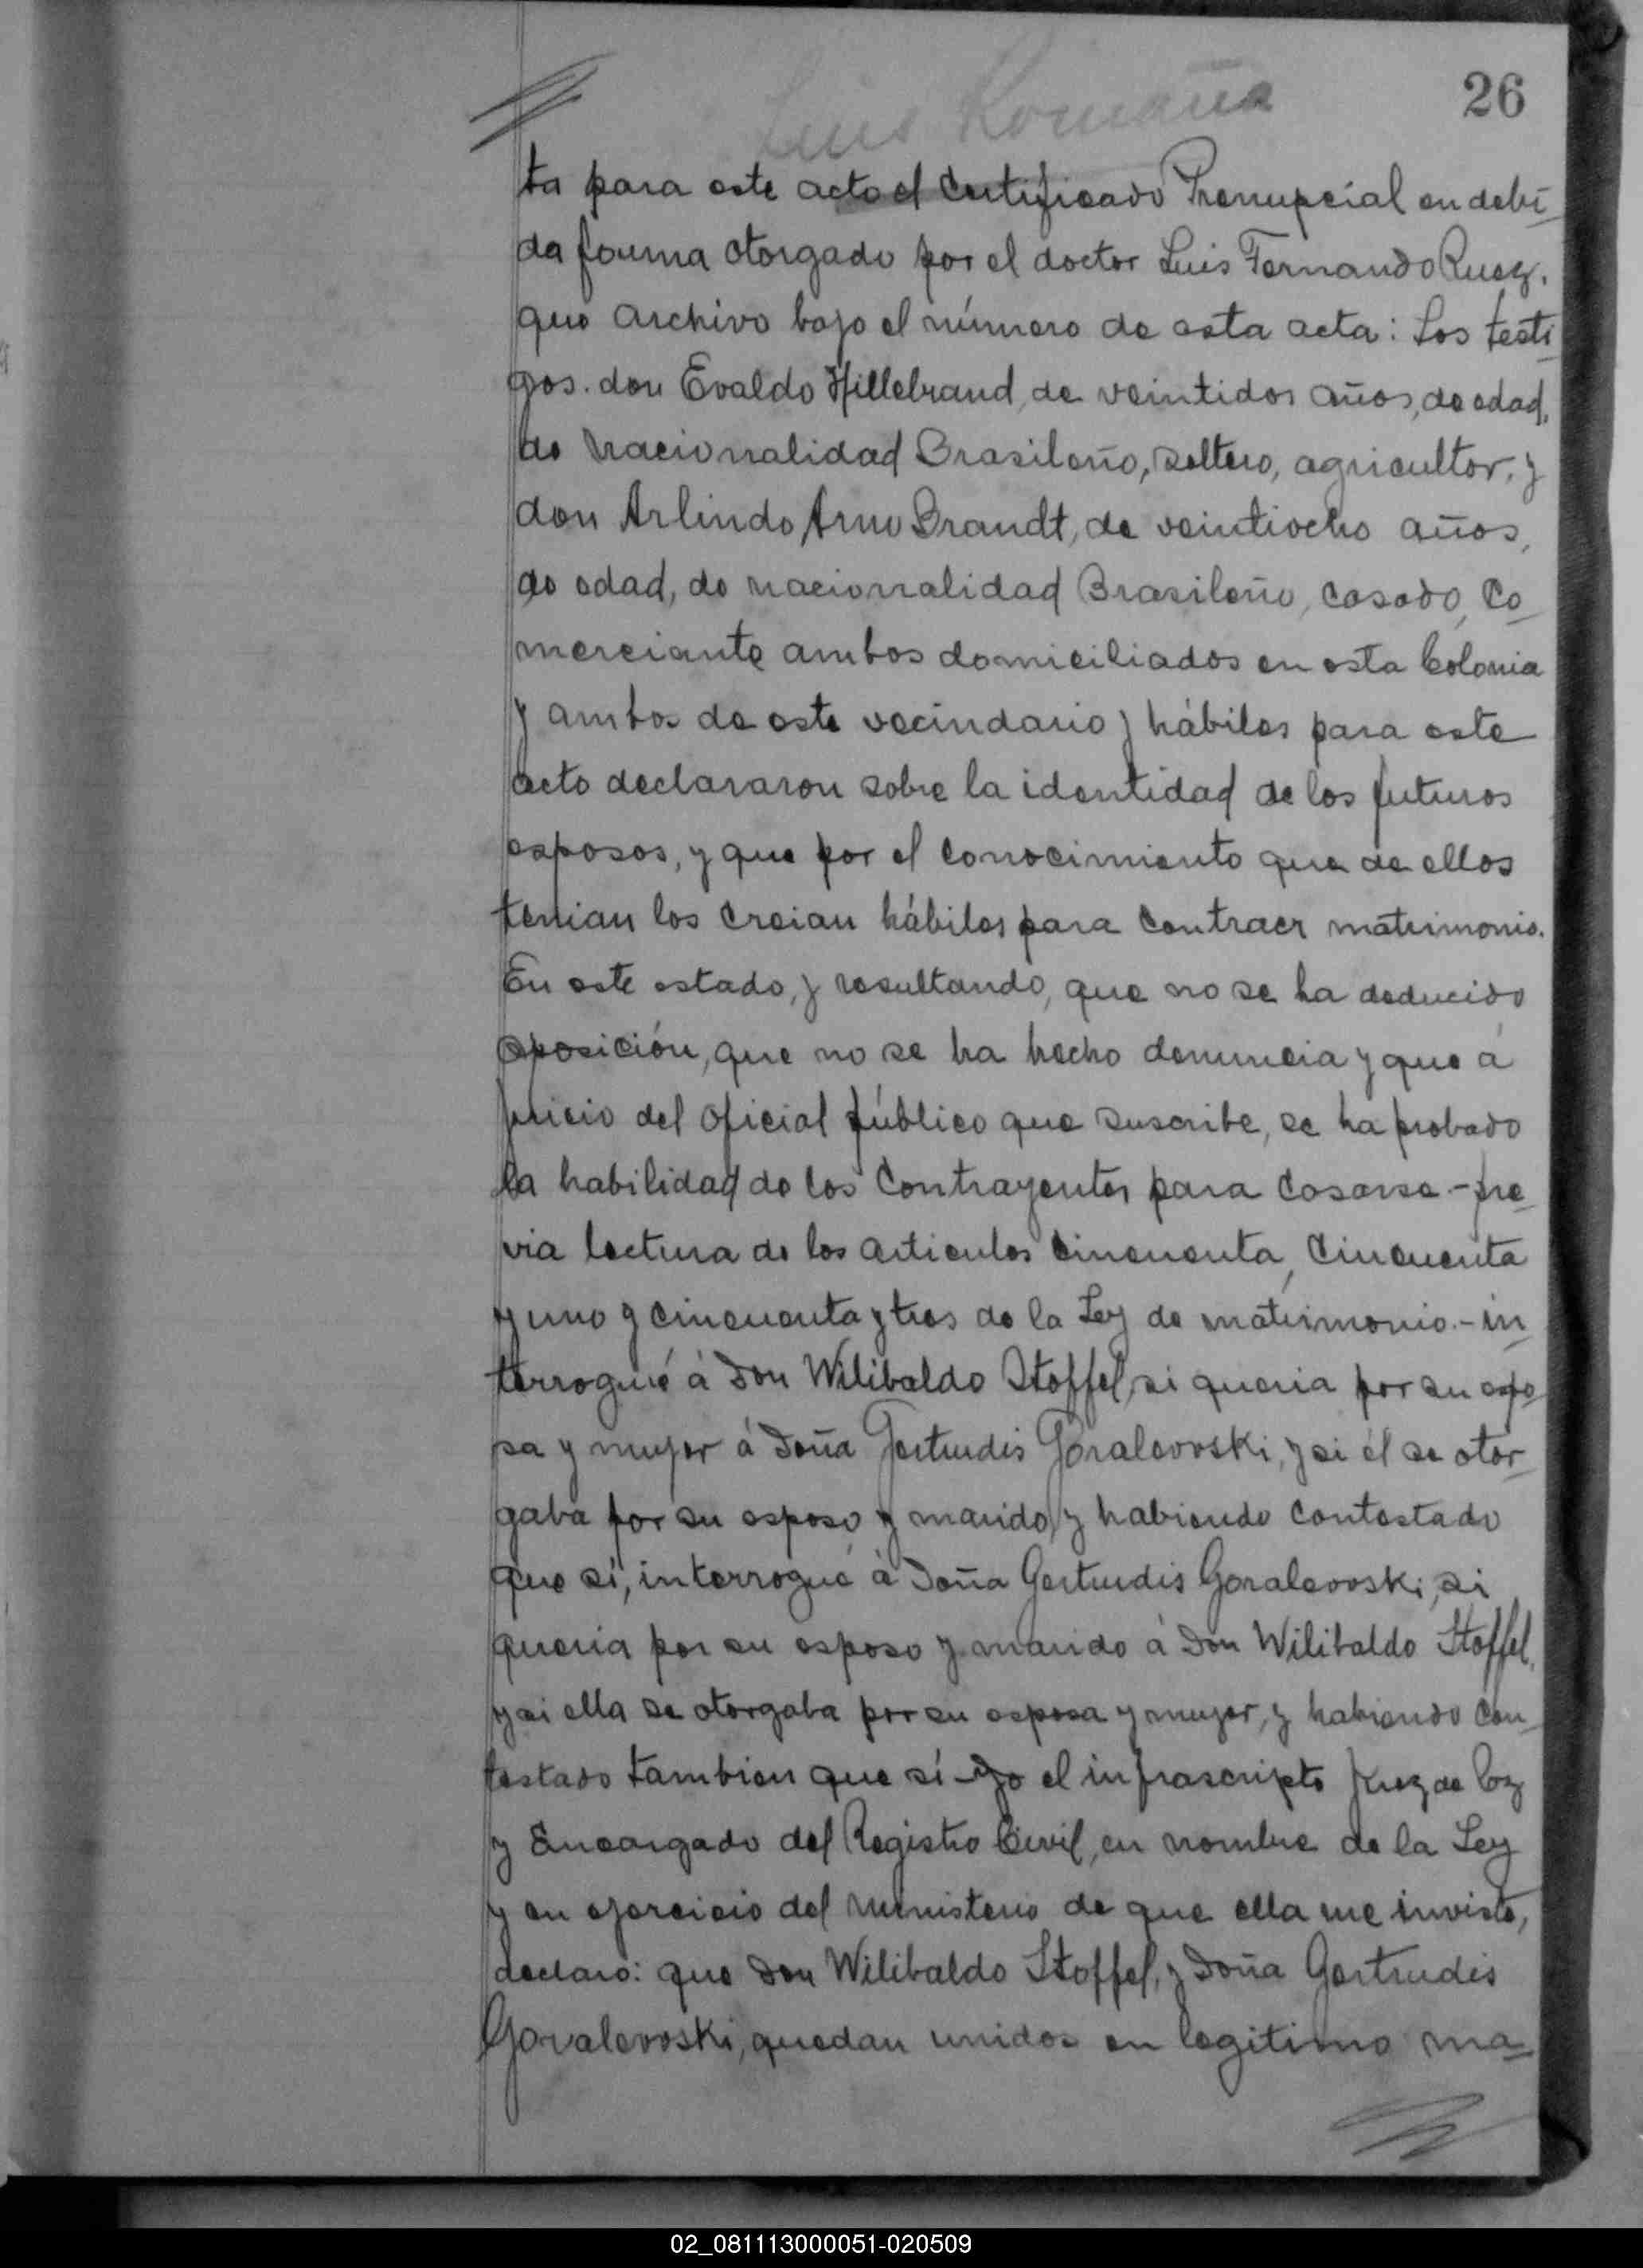 Luis Romaña
26
ta para este acto el Certificado Prenupcial en debi
da forma otorgado por el doctor Luis Fernando Ruez.
que archivo bajo el número de esta acta: Los testi
gos. don Evaldo Hillebrand, de veintidos años, de edad,
de nacionalidad Brasileño, soltero, agricultor, y
don Arlindo Arno Brandt, de veintiocho años,
de edad, de nacionalidad Brasileño, casado, Co
merciante ambos domiciliados en esta Colonia
y ambos de este vecindario y hábiles para este
acto declararon sobre la identidad de los futuros
esposos, y que por el conocimiento que de ellos
tenian los creian hábiles para contraer matrimonio.
En este estado, y resultando, que no se ha deducido
oposición, que no se ha hecho denuncia y que á
juicio del oficial público que suscribe, se ha probado
la habilidad de los Contrayentes para casarse - pre
via lectura de los articulos cincuenta, cincuenta
y uno y cincuenta y tres de la Ley de matrimonio. - in
terrogué á Don Wilibaldo Stoffel, si queria por su espo
sa y mujer á Doña Gertrudis Goralevvski, y si él se otor
gaba por su esposo y marido, y habiendo contestado
que sí, interrogué á Doña Gertrudis Goralevvski, si
queria por su esposo y marido á Don Wilibaldo Stoffel,
y si ella se otorgaba por su esposa y mujer, y habiendo con
testado tambien que sí - yo el infrascripto Juez de Paz
y Encargado del Registro Civil, en nombre de la Ley
y en ejercicio del ministerio de que ella me inviste,
declaro: que Don Wilibaldo Stoffel, y Doña Gertrudis
Goralevvski, quedan unidos en legitimo ma
02_081113000051-020509